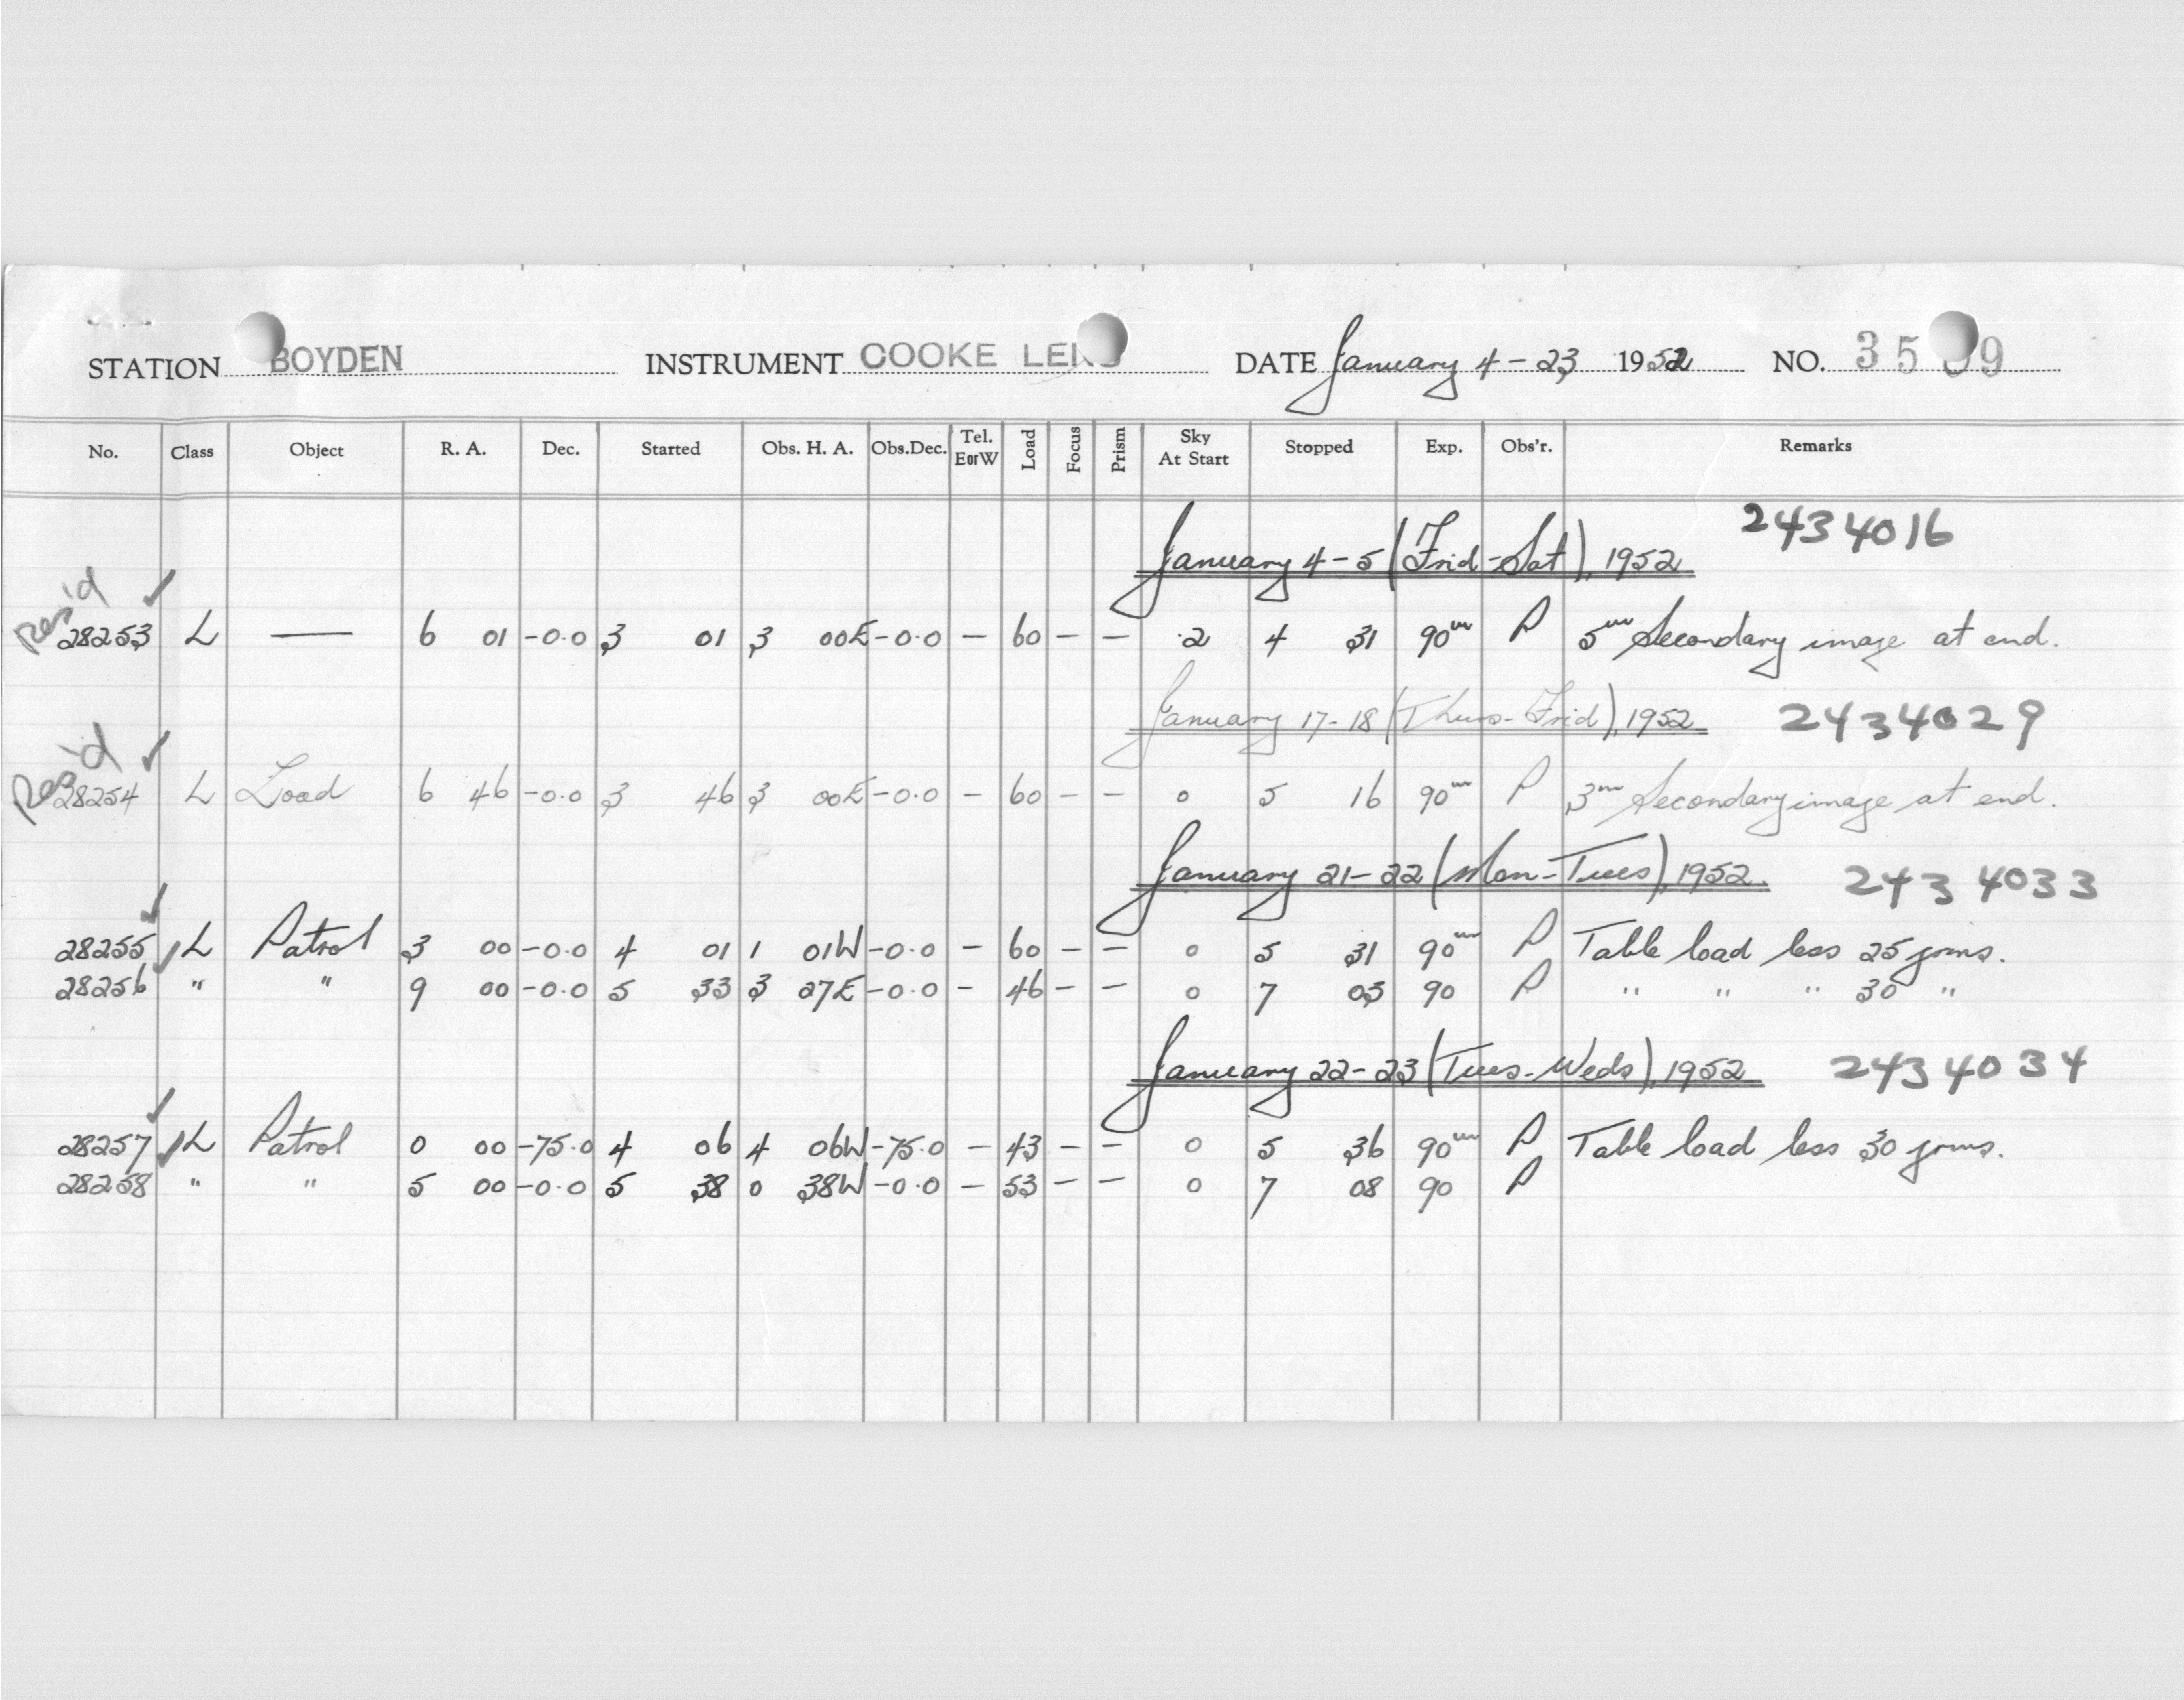 STATION BOYDEN INSTRUMENT COOKE LENS DATE January 4-23 1952 NO. 35 9
No. Class Object R. A. Dec. Started Obs. H. A. Obs.Dec. Tel. EorW Load Focus Prism Sky At Start Stopped Exp. Obs'r. Remarks
January 4-5 (Frid-Sat), 1952 2434016
Res'd ✓
28253 L — 6 01 -0.0 3 01 3 00E -0.0 — 60 — — 2 4 31 90m P 5m Secondary image at end.
January 17-18 (Thurs-Frid), 1952 2434029
Res'd ✓
28254 L Load 6 46 -0.0 3 46 3 00E -0.0 — 60 — — 0 5 16 90m P 3m Secondary image at end.
January 21-22 (Mon-Tues), 1952. 2434033
28255 ✓ L Patrol 3 00 -0.0 4 01 1 01W -0.0 — 60 — — 0 5 31 90m P Table load less 25 gms.
28256 ✓ " " 9 00 -0.0 5 33 3 27E -0.0 — 46 — — 0 7 03 90 P " " " 30 "
January 22-23 (Tues-Weds), 1952 2434034
28257 ✓ L Patrol 0 00 -75.0 4 06 4 06W -75.0 — 43 — — 0 5 36 90m P Table load less 30 gms.
28258 " " 5 00 -0.0 5 38 0 38W -0.0 — 53 — — 0 7 08 90 P